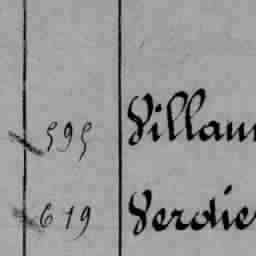 595 Villau
619 Verdie